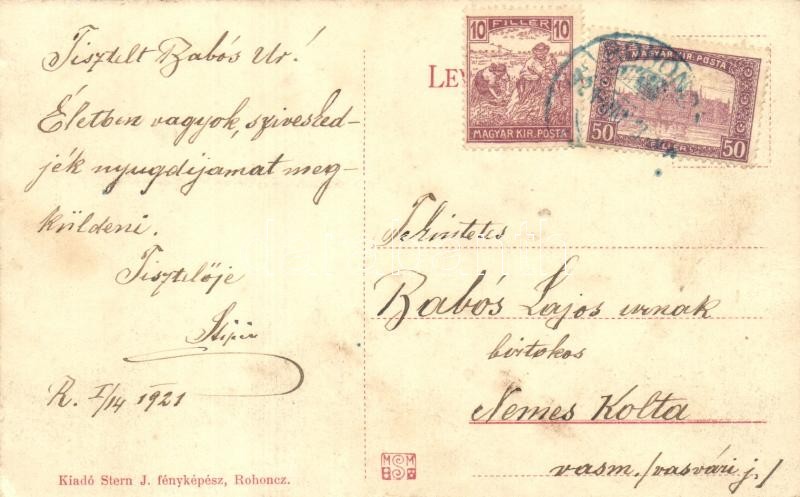 Tisztelt Babós Ur!
Életben vagyok, sziveszked-
jék nyugdijamat meg-
küldeni.
Tisztelője
R. I/14 1921
Kiadó Stern J. fényképész, Rohoncz.
10 FILLÉR 10
MAGYAR KIR. POSTA
MAGYAR KIR. POSTA
50 FILLÉR 50
ROHONCZ
Tekintetes
Babós Lajos urnak
birtokos
Nemes Kolta
vasm. /vasvári j./
MSM